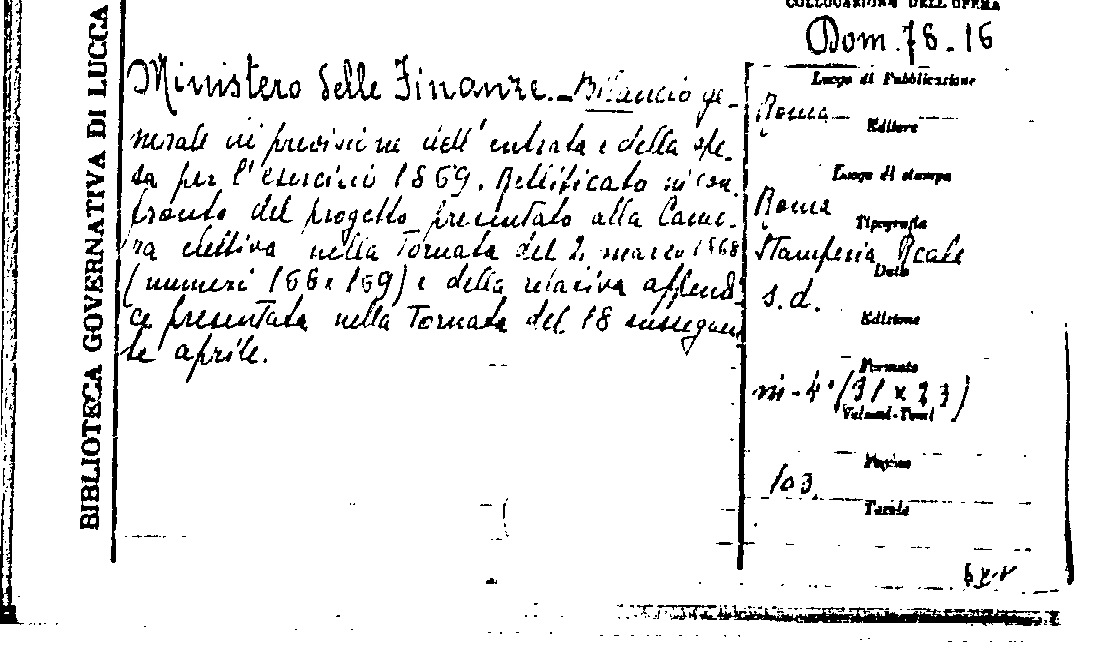 BIBLIOTECA GOVERNATIVA DI LUCCA
COLLOCAZIONE DELL'OPERA
Dom. 78-16
Ministero delle Finanze. - Bilancio ge-
nerale di previsione dell'entrata e della spe-
sa per l'esercizio 1869. Rettificato in con
fronto del progetto presentato alla Came-
ra elettiva nella Tornata del 2 marzo 1868
(numeri 168 e 169) e della relativa appendi
ce presentata nella Tornata del 18 susseguen
te aprile.
Luogo di Pubblicazione
Roma
Editore
Luogo di stampa
Roma
Tipografia
Stamperia Reale
Data
s.d.
Edizione
Formato
in-4° (31 x 23)
Volumi-Tomi
Pagine
103.
Tavole